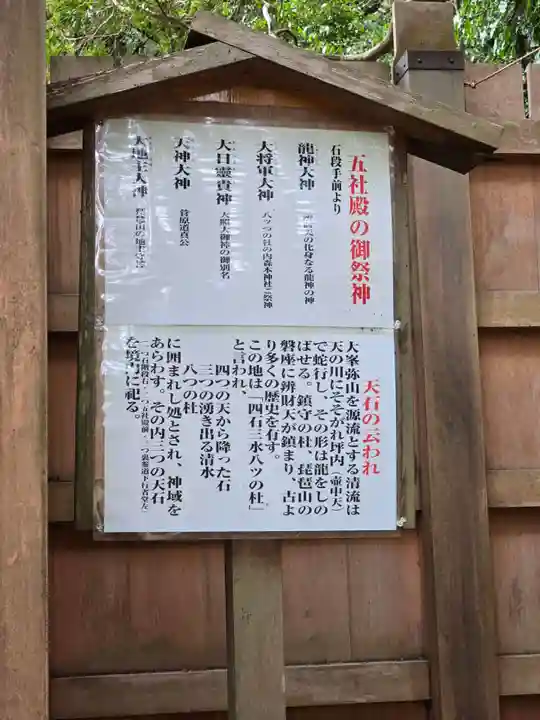 五社殿の御祭神
石段手前より
龍神大神
の化身なる龍神の神
大将軍大神
八ッつの社の内森本神社ご祭神
大日霊貴神
天照大御神の御別名
天神大神
菅原道真公
大地主大神
山の地主
天石の云われ
大峯弥山を源流とする清流は
天の川にそそがれ坪内(壷中天)
で蛇行し、その形は龍をしの
ばせる。鎮守の杜、琵琶山の
磐座に辨財天が鎮まり、古よ
り多くの歴史を有す。
この地は「四石三水八ツの杜」
と言われ、
四つの天から降った石
三つの湧き出る清水
八つの杜
に囲まれし処とされ、神域を
あらわす。その内三つの天石
を境内に祀る。